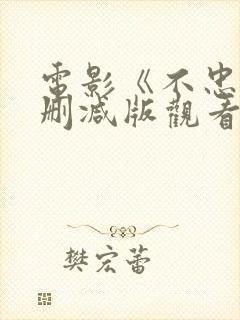 電影《不忠
刪減版觀看
樊宏蕾